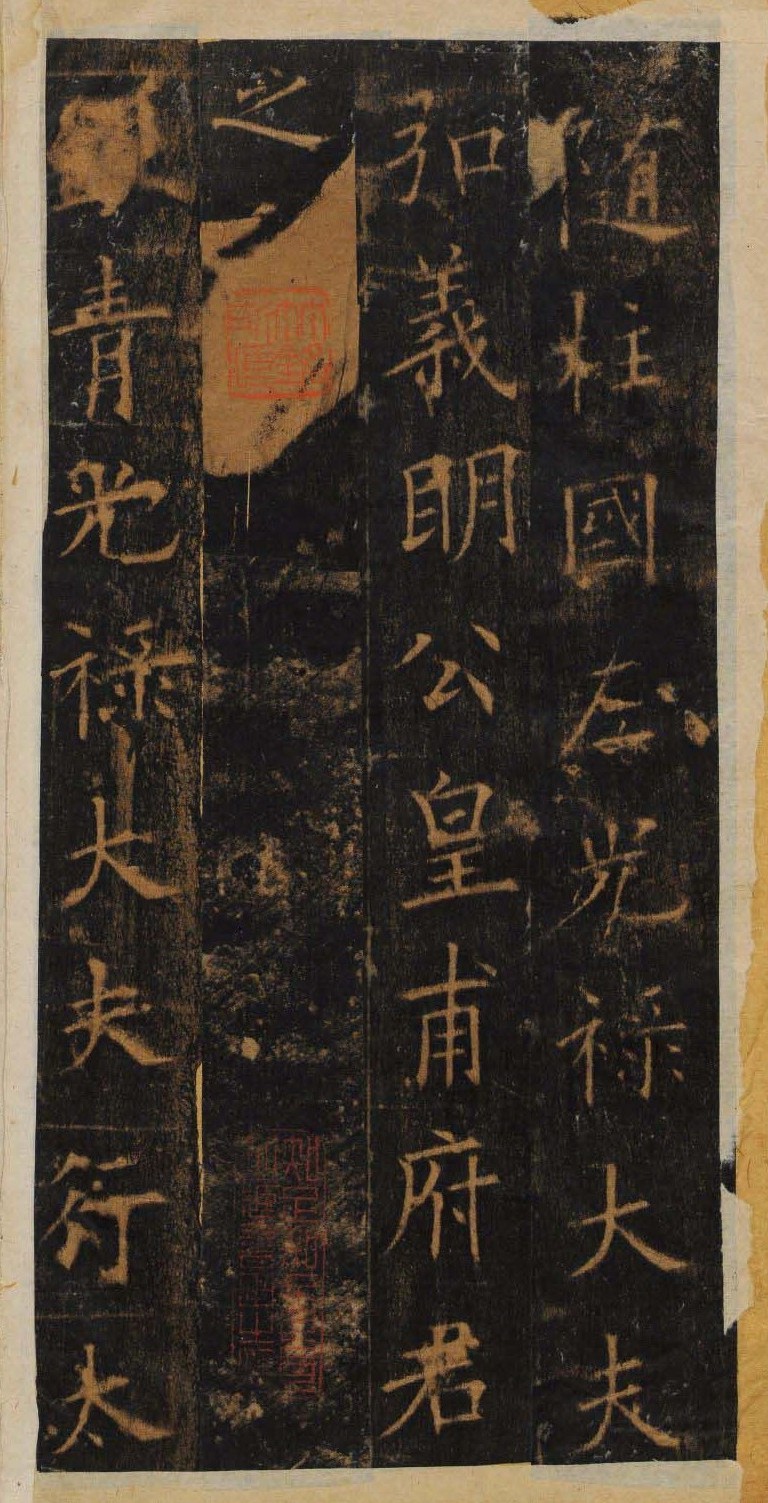 随柱國左光禄大夫
弘義明公皇甫府君
之
青光禄大夫行太